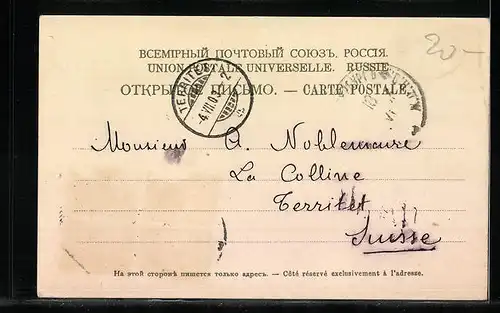 20-
ВСЕМІРНЫЙ ПОЧТОВЫЙ СОЮЗЪ. РОССІЯ.
UNION POSTALE UNIVERSELLE. RUSSIE.
ОТКРЫТОЕ ПИСЬМО. — CARTE POSTALE.
TERRITET
Monsieur A. Noblemaire
La Colline
Territet
Suisse
На этой сторонѣ пишется только адресъ. — Côté réservé exclusivement à l'adresse.